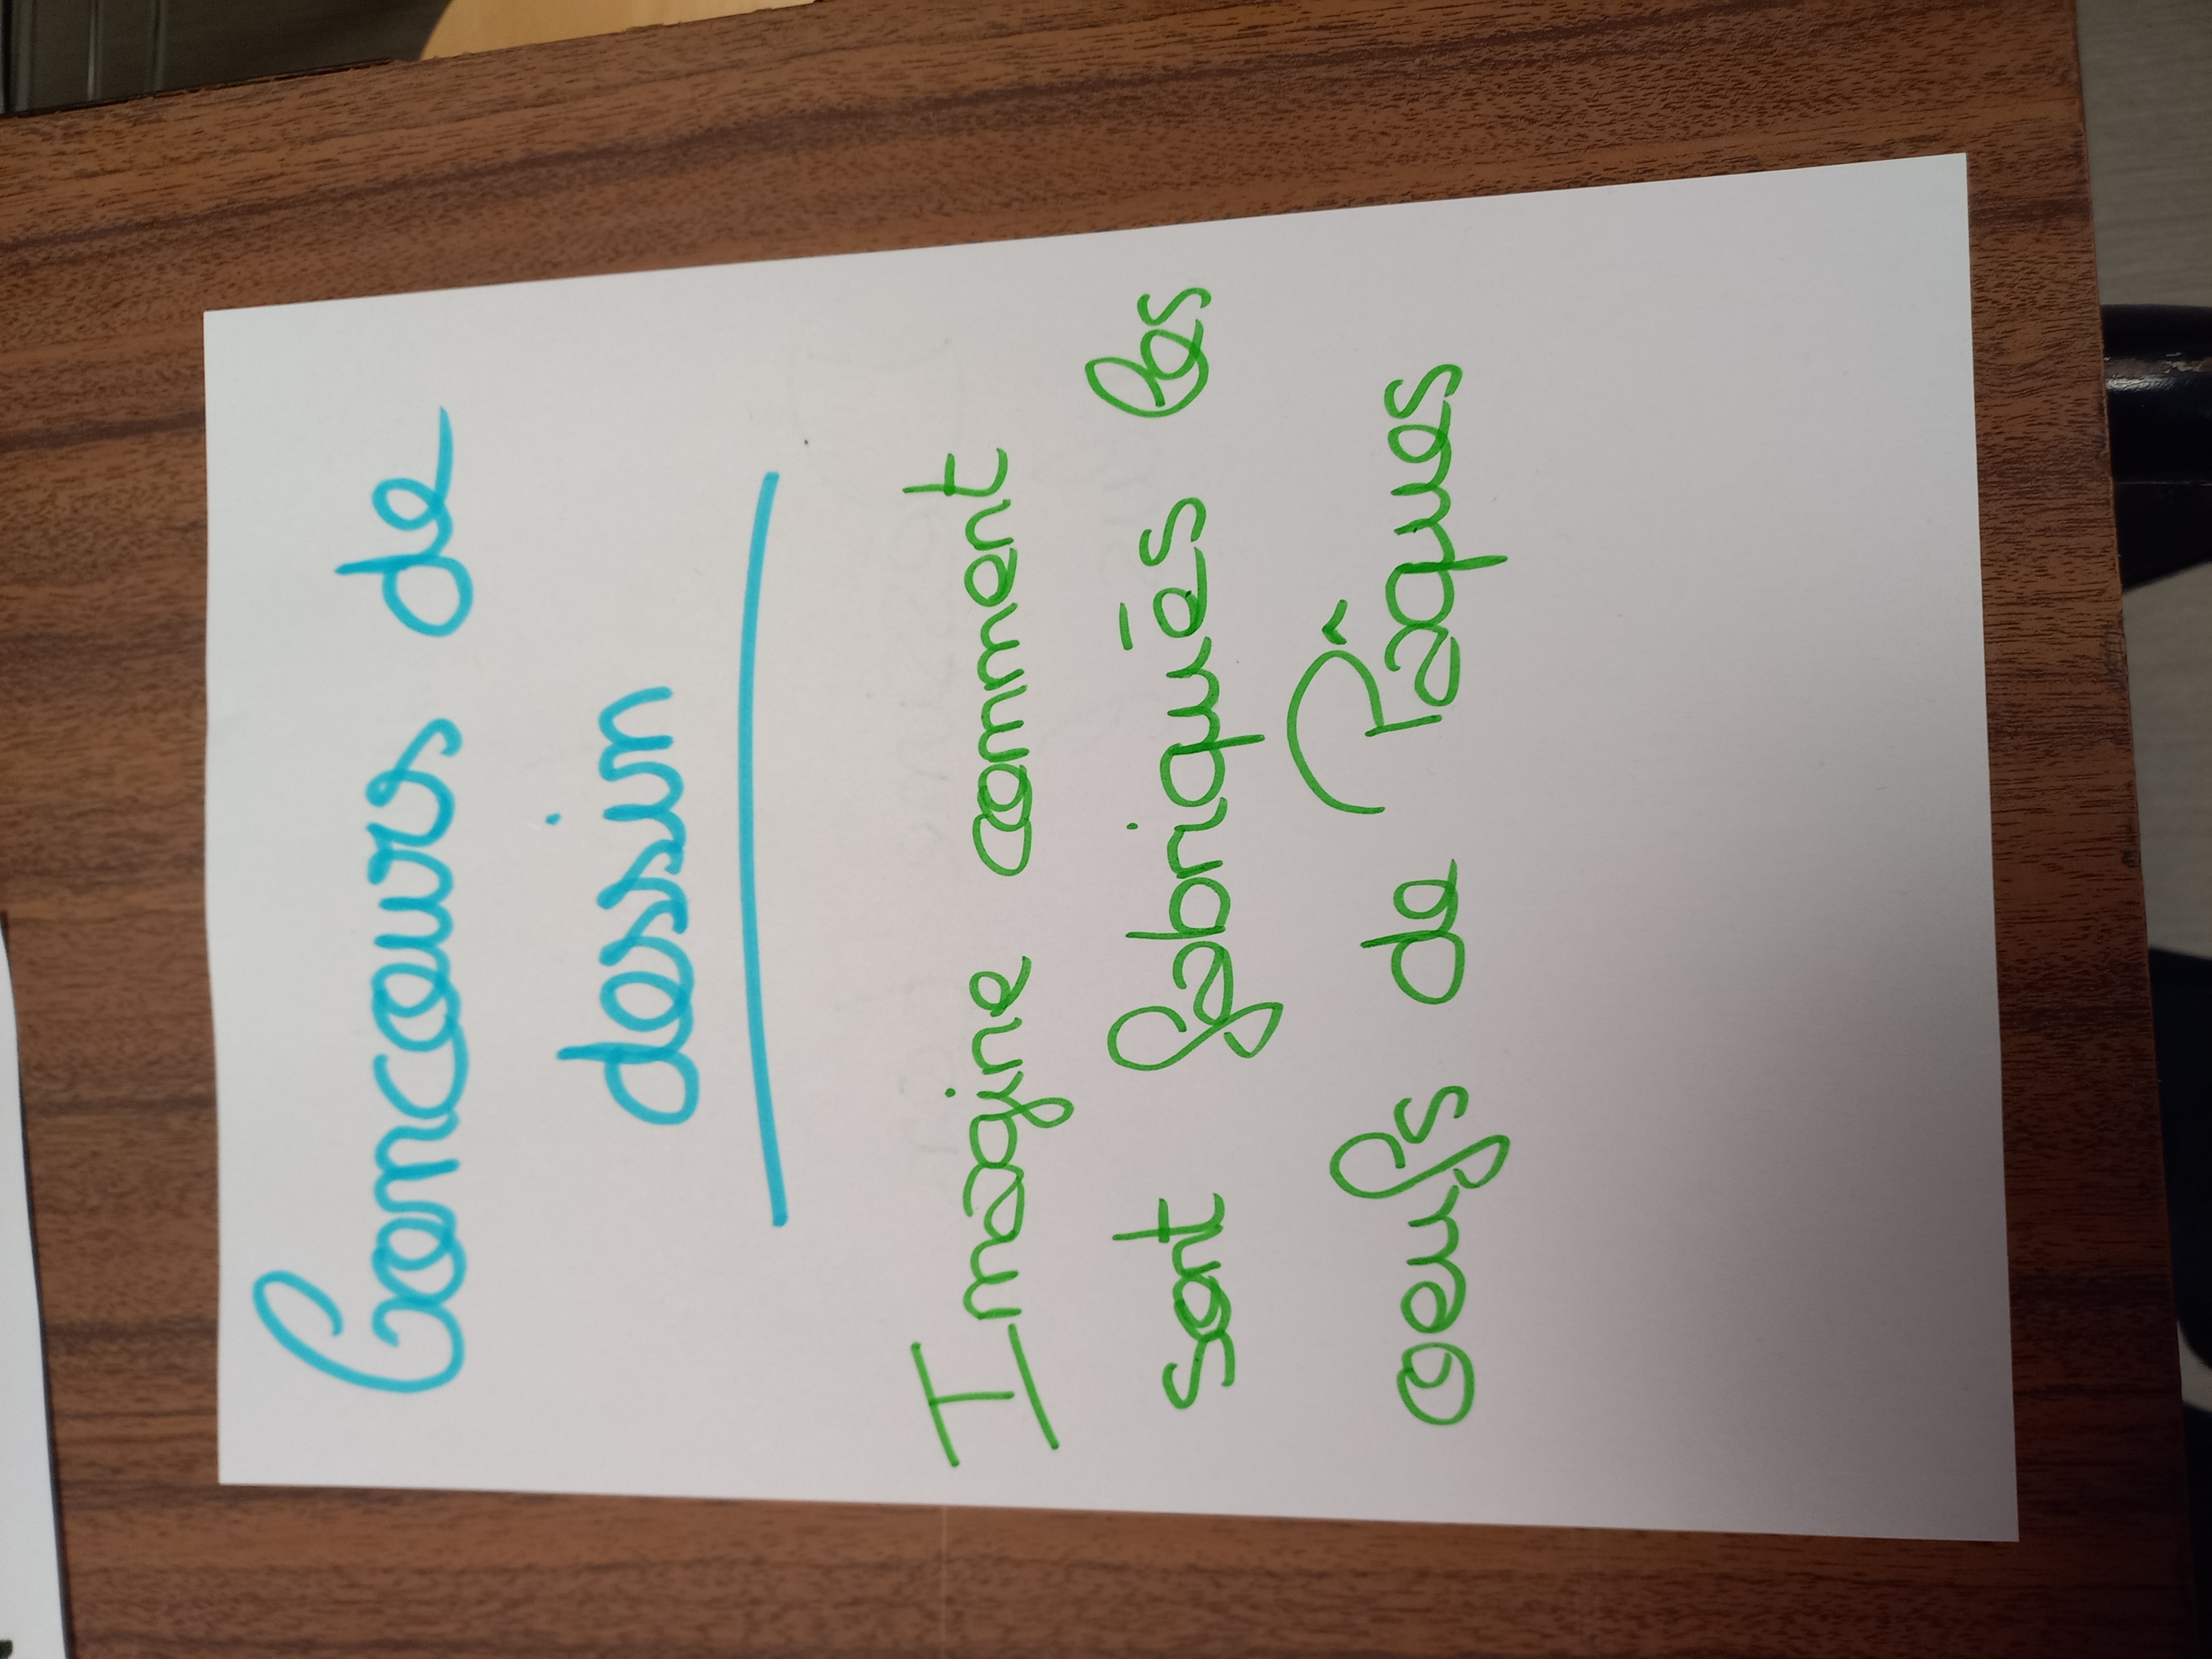 Concours de
dessin
Imagine comment
sont fabriqués les
oeufs de Pâques